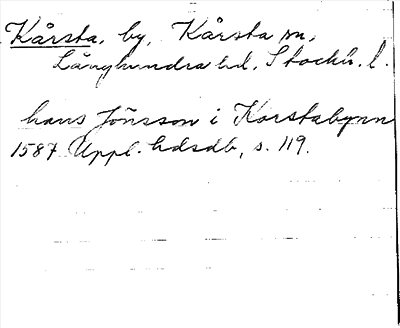 Kårsta, by, Kårsta sn,
Långhundra hd, Stockh. l.
hans Jönsson i Korstabynn
1587 Uppl. hdsdb, s. 119.